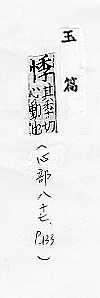 玉篇
悸
其季切
心動也
(心部八十七、P.133)